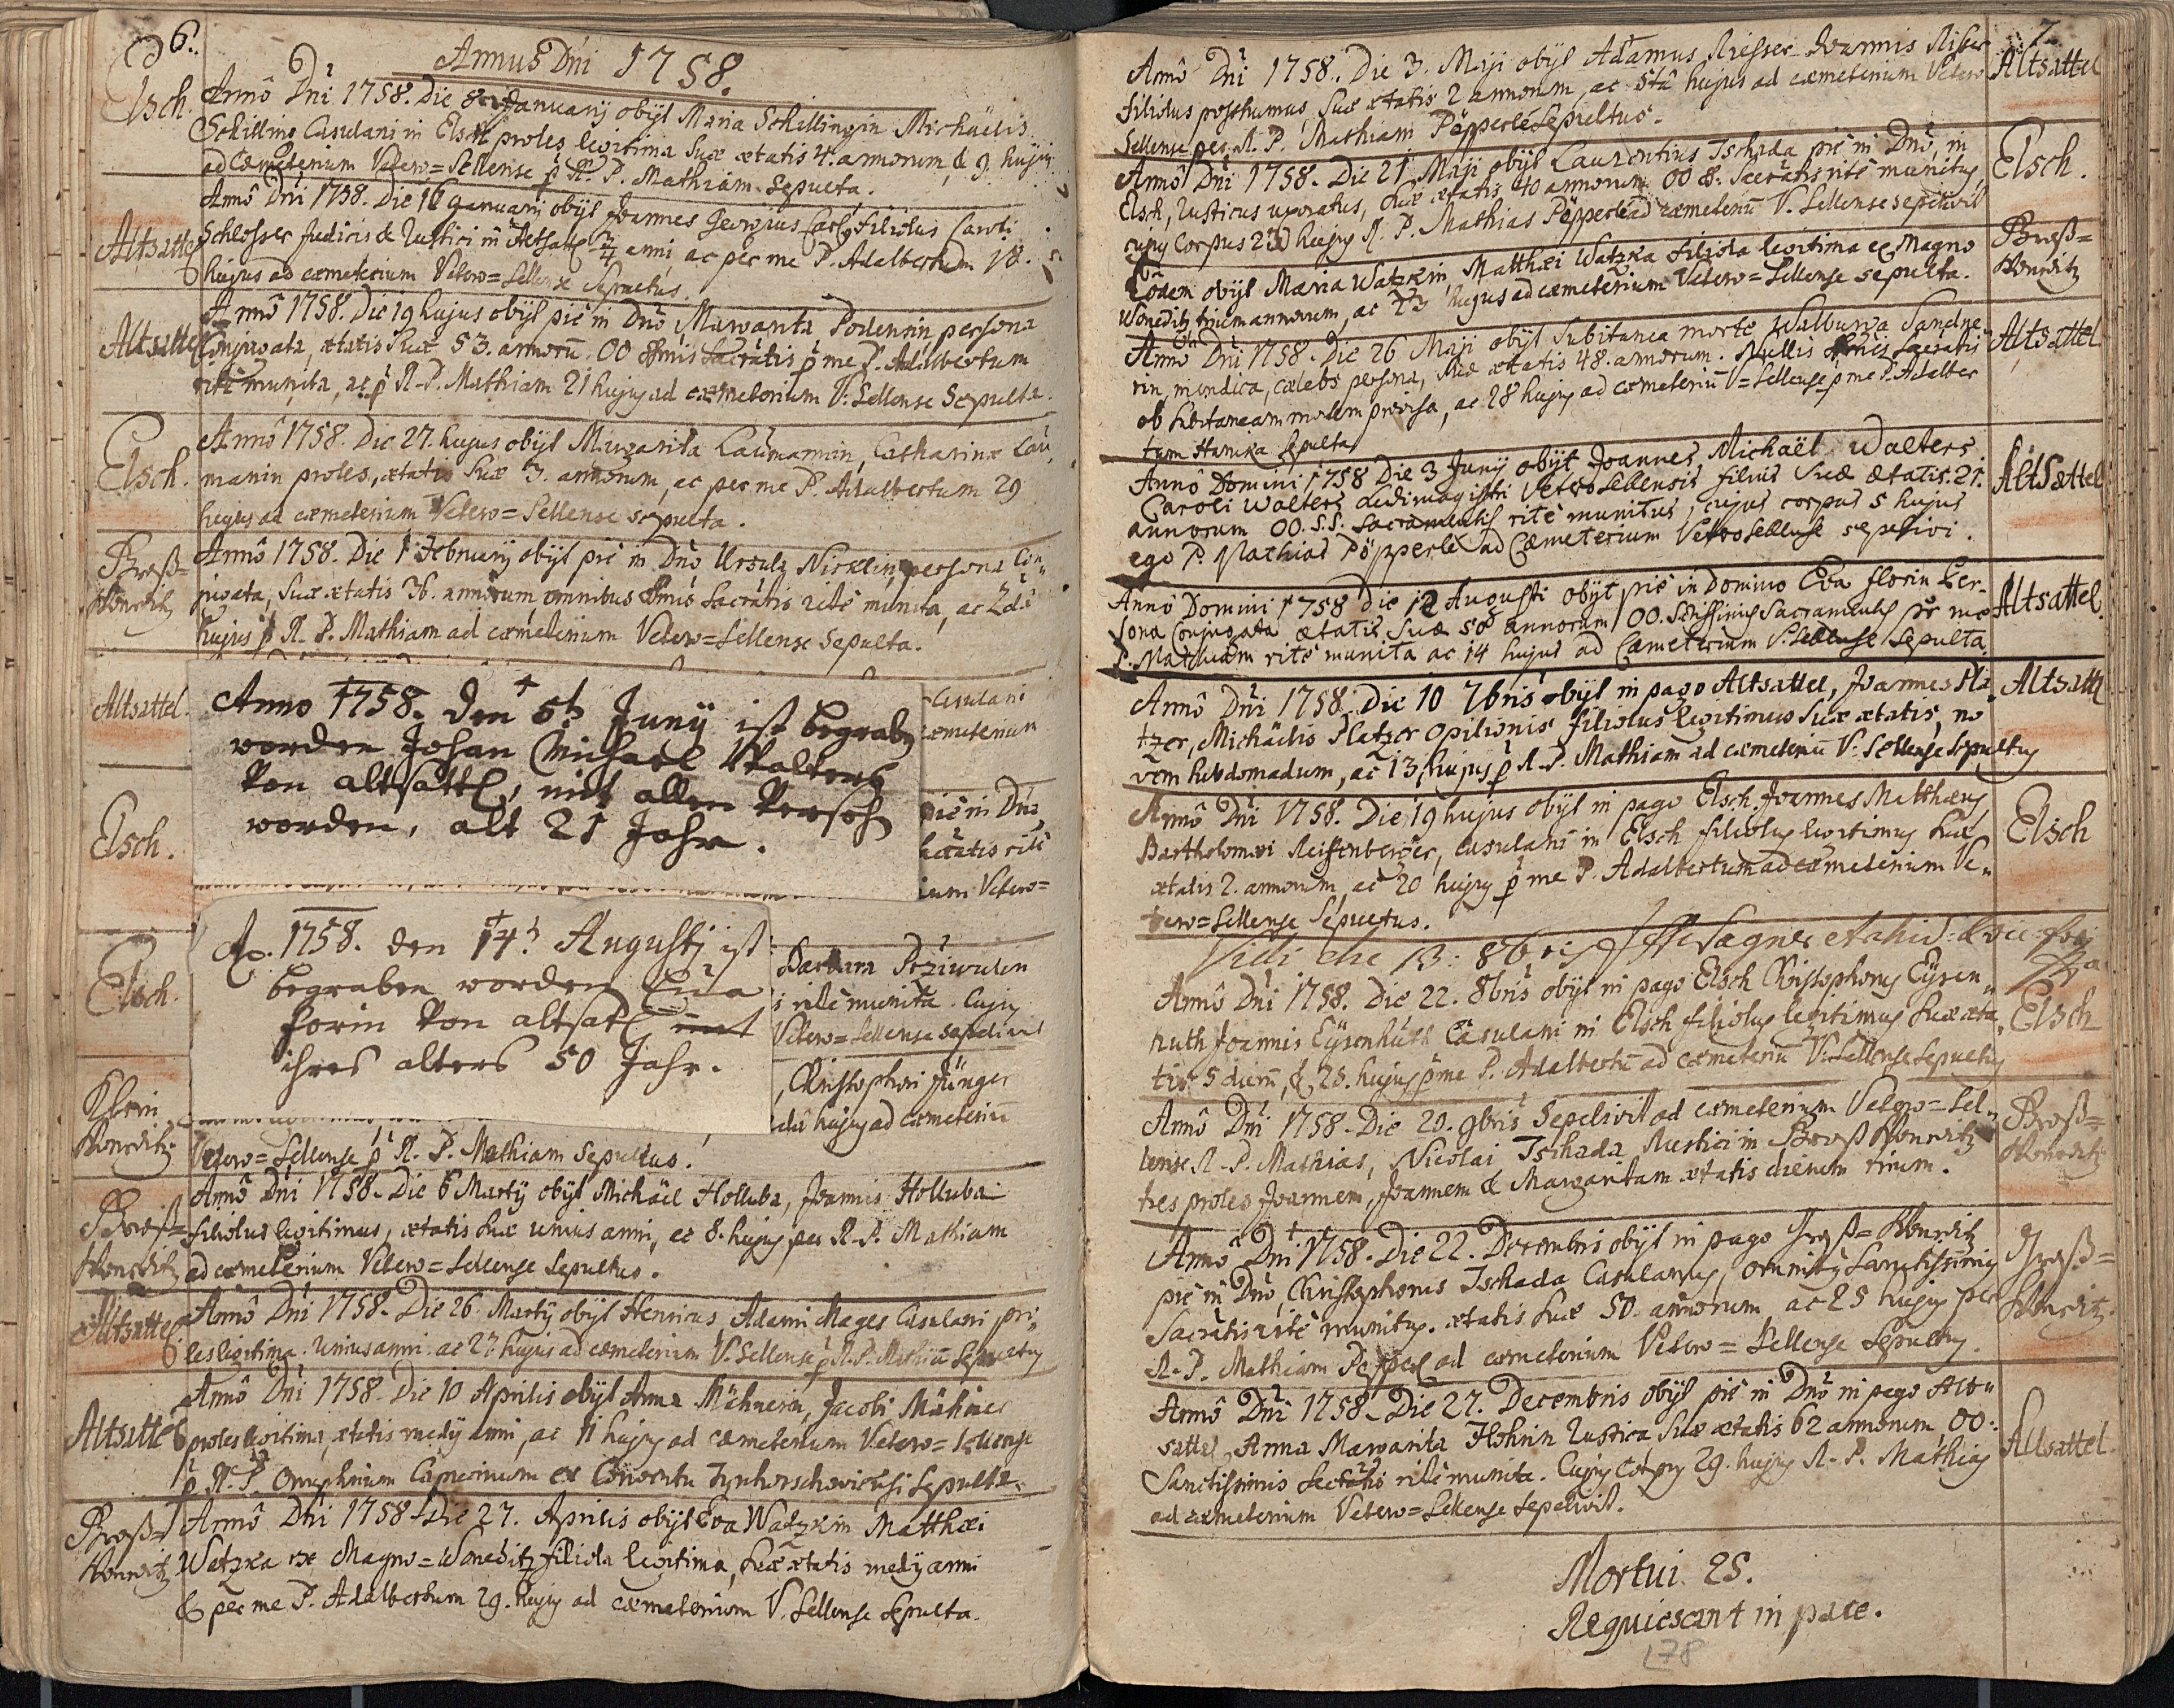 6.
Annus Dni 1758.
Elsch.
Annô Dni 1758. Die 8 Januarÿ obÿt Maria Schillingin Michaelis
Schilling Casulani in Elsch proles legitima suæ ætatis 4. annorum, & 9. hujus
ad cœmeterium Vetero=Sellense p R. P. Mathiam Sepulta.
Altsattel
Annô Dni 1758. Die 16 Januarÿ obÿt Joannes Georgius Carl filiolus Caroli
Schlosser Judicis & Rustici in Altsattl 3/4 anni, ac per me P. Adalbertum 18.
hujus ad cœmeterium Vetero=Sellense Sepultus.
Altsattel
Annô 1758. Die 19 hujus obÿt piè in Dnô Margarita persona
Conjugata, ætatis suæ 53. annorū. OO Sacrātis p me P. Adalbertum
ritè munita, ac p R. P. Mathiam 21 hujus ad cœmeterium V. Sellense Sepulta.
Elsch.
Annô 1758. Die 27. hujus obÿt Margarita Laumannin, Catharinæ Lau„
manin proles, ætatis suæ 3. annorum, ac per me P. Adalbertum 29
hujus ad cœmeterium Vetero=Sellense sepulta.
Groß=
Wonditz
Annô 1758. Die 1 Februarÿ obÿt piè in Dnô Ursula Nicklin persona Con„
jugata, suæ ætatis 36. annorum omnibus Sacrātis ritè munita, ac 2dâ
hujus p R. P. Mathiam ad cœmeterium Vetero=Sellense Sepulta.
Altsattel.
Casulani
cœmeterium
Anno 1758. den 5t Junÿ ist begrabn
worden Johan Michael Walters
Von altsattl, mit allen Versehn
worden, alt 21 Jahr.
Elsch.
piè in Dnô
Sacrātis ritè
ium Vetero=
Ao. 1758. den 14t Augustj ist
begraben worden Eua
florin Von altsatl
ihres alters 50 Jahr.
Elsch.
Barbara
ritè munita. Cujus
Vetero=Sellense sepelivit
Klein
Wonditz
, Christophori Jünger
hujus ad cœmeteriū
Vetero=Sellense p R. P. Mathiam Sepultus.
Groß=
Wonditz
Annô Dni 1758. Die 6 Martÿ obÿt Michäel Holluba, Joannis Holluba
filiolus legitimus, ætatis suæ unius anni, et 8. hujus per R. P. Mathiam
ad cœmeterium Vetero=Sellense Sepultus.
Altsattel
Annô Dni 1758. Die 26 Martÿ obÿt Henricus, Adami Mages Casulani pro„
les legitima. Unius anni. ac 27 hujus ad cœmeterium V. Sellense p R. P. Mathiā Sepultus
Altsattel
Annô Dni 1758. Die 10 Aprilis obÿt Anna Mähnerin, Jacobi Mähner
proles legitima, ætatis medÿ anni, ac 11 hujus ad cœmeterium Vetero=Sellense
p R. P. Onuphrium Capucinum ex Conventu Sepulta.
Groß=
Wonditz
Annô Dni 1758 Die 27. Aprilis obÿt Eva Watzkin Matthæi
Watzka ex Magno=Wonditz filiola legitima, suæ ætatis medÿ anni
& per me P. Adalbertum 29. hujus ad cœmeterium V. Sellense Sepulta.
7
Annô Dni 1758. Die 3. Maji obÿt Adamus Riesser Joannis Risser
filiolus posthumus suæ ætatis 2 annorum, ac 5tâ hujus ad cœmeterium Vetero
Sellense per R. P. Mathiam Pöpperle Sepultus.
Altsattel
Annô Dni 1758. Die 21 Maji obÿt Laurentius Tschada piè in Dnô, in
Elsch, Rusticus uxoratus, suæ ætatis 40 annorum OO S. Sacrātis ritè munitus
cujus Corpus 23 hujus R. P. Mathias Pöpperle ad cœmeteriū V. Sellense sepelivit
Elsch.
Eôdem obÿt Maria Watzkin, Matthæi Watzka filiola legitima ex Magno
Wonditz trium annorum, ac 23 hujus ad cœmeterium Vetero=Sellense sepulta.
Groß=
Wonditz
Annô Dni 1758. Die 26 Maji obÿt subitanea morte Walburga
rin, mendica, cælebs persona, suæ ætatis 48. annorum. Nullis Sacratis
ob subitaneam mortem provisa, ac 28 hujus ad cœmeteriū V=Sellense p me P. Adalber
tum Hanika Sepulta
Altsattel
Annô Domini 1758 Die 3 Junÿ obÿt Joannes Michaël Walters
Caroli Walters ludimagistri Veterosellensis filius suæ ætatis 21.
annorum OO. S.S. Sacramentis ritè munitus, cujus corpus 5 hujus
ego P. Mathias Pöpperle ad Cæmeterium Veterosellense sepelivi.
AltSattel
Annô Domini 1758 Die 12 Augusti obÿt piè in Domino Eva florin Per-
sona Conjugata ætatis suæ 50 annorum OO. Sctissimis Sacramentis per me
P. Mathiam ritè munita ac 14 hujus ad Cæmeterium V. Sellense Sepulta
Altsattel
Annô Dni 1758. Die 10 7bris obÿt in pago Altsattel, Joannes Pla
tzer, Michaëlis Platzer Opilionis filiolus legitimus suæ ætatis no
vem hebdomadum, ac 13 hujus p R. P. Mathiam ad cœmeteriū V. Sellense Sepultus
Altsattl
Annô Dni 1758. Die 19 hujus obÿt in pago Elsch Joannes Matthæus
Bartholomæi Reiffenberger, casulani in Elsch filiolus legitimus suæ
ætatis 2. annorum, ac 20 hujus p me P. Adalbertum ad cœmeterium Ve„
tero=Sellense Sepultus.
Elsch
Vidi die 13: 8bris
Annô Dni 1758. Die 22. 8bris obÿt in pago Elsch Christophorus Eÿsen„
huth Joannis Eÿsenhuth Casulani in Elsch filiolus legitimus suæ æta„
tis 5 dierū, & 25. hujus p me P. Adalbertū ad cœmeteriū V. Sellense Sepultus
Elsch
Annô Dni 1758. Die 20. 9bris Sepelivit ad cœmeterium Vetero=Sel„
lense R. P. Mathias, Nicolai Tschada Rustici in Groß Wonditz
tres proles Joannem, Joannem & Margaritam ætatis dierum trium.
Groß=
Wonditz
Annô Dni 1758. Die 22. Decembris obÿt in pago Groß=Wonditz
piè in Dnô, Christophorus Tschada Casulanus, omnibus Sanctissimis
Sacrātis ritè munitus. ætatis suæ 50. annorum ac 25 hujus per
R. P. Mathiam Pepperl ad cœmeterium Vetero=Sellense Sepultus.
Groß=
Wonditz.
Annô Dni 1758. Die 27. Decembris obÿt piè in Dnô in pago Alt„
sattel Anna Margarita Hohnin Rustica, suæ ætatis 62 annorum, OO:
Sanctissimis Sacrātis ritè munita. Cujus Corpus 29. hujus R. P. Mathias
ad cœmeterium Vetero=Sellense Sepelivit.
Altsattel.
Mortui 25.
Requiescant in pace.
178